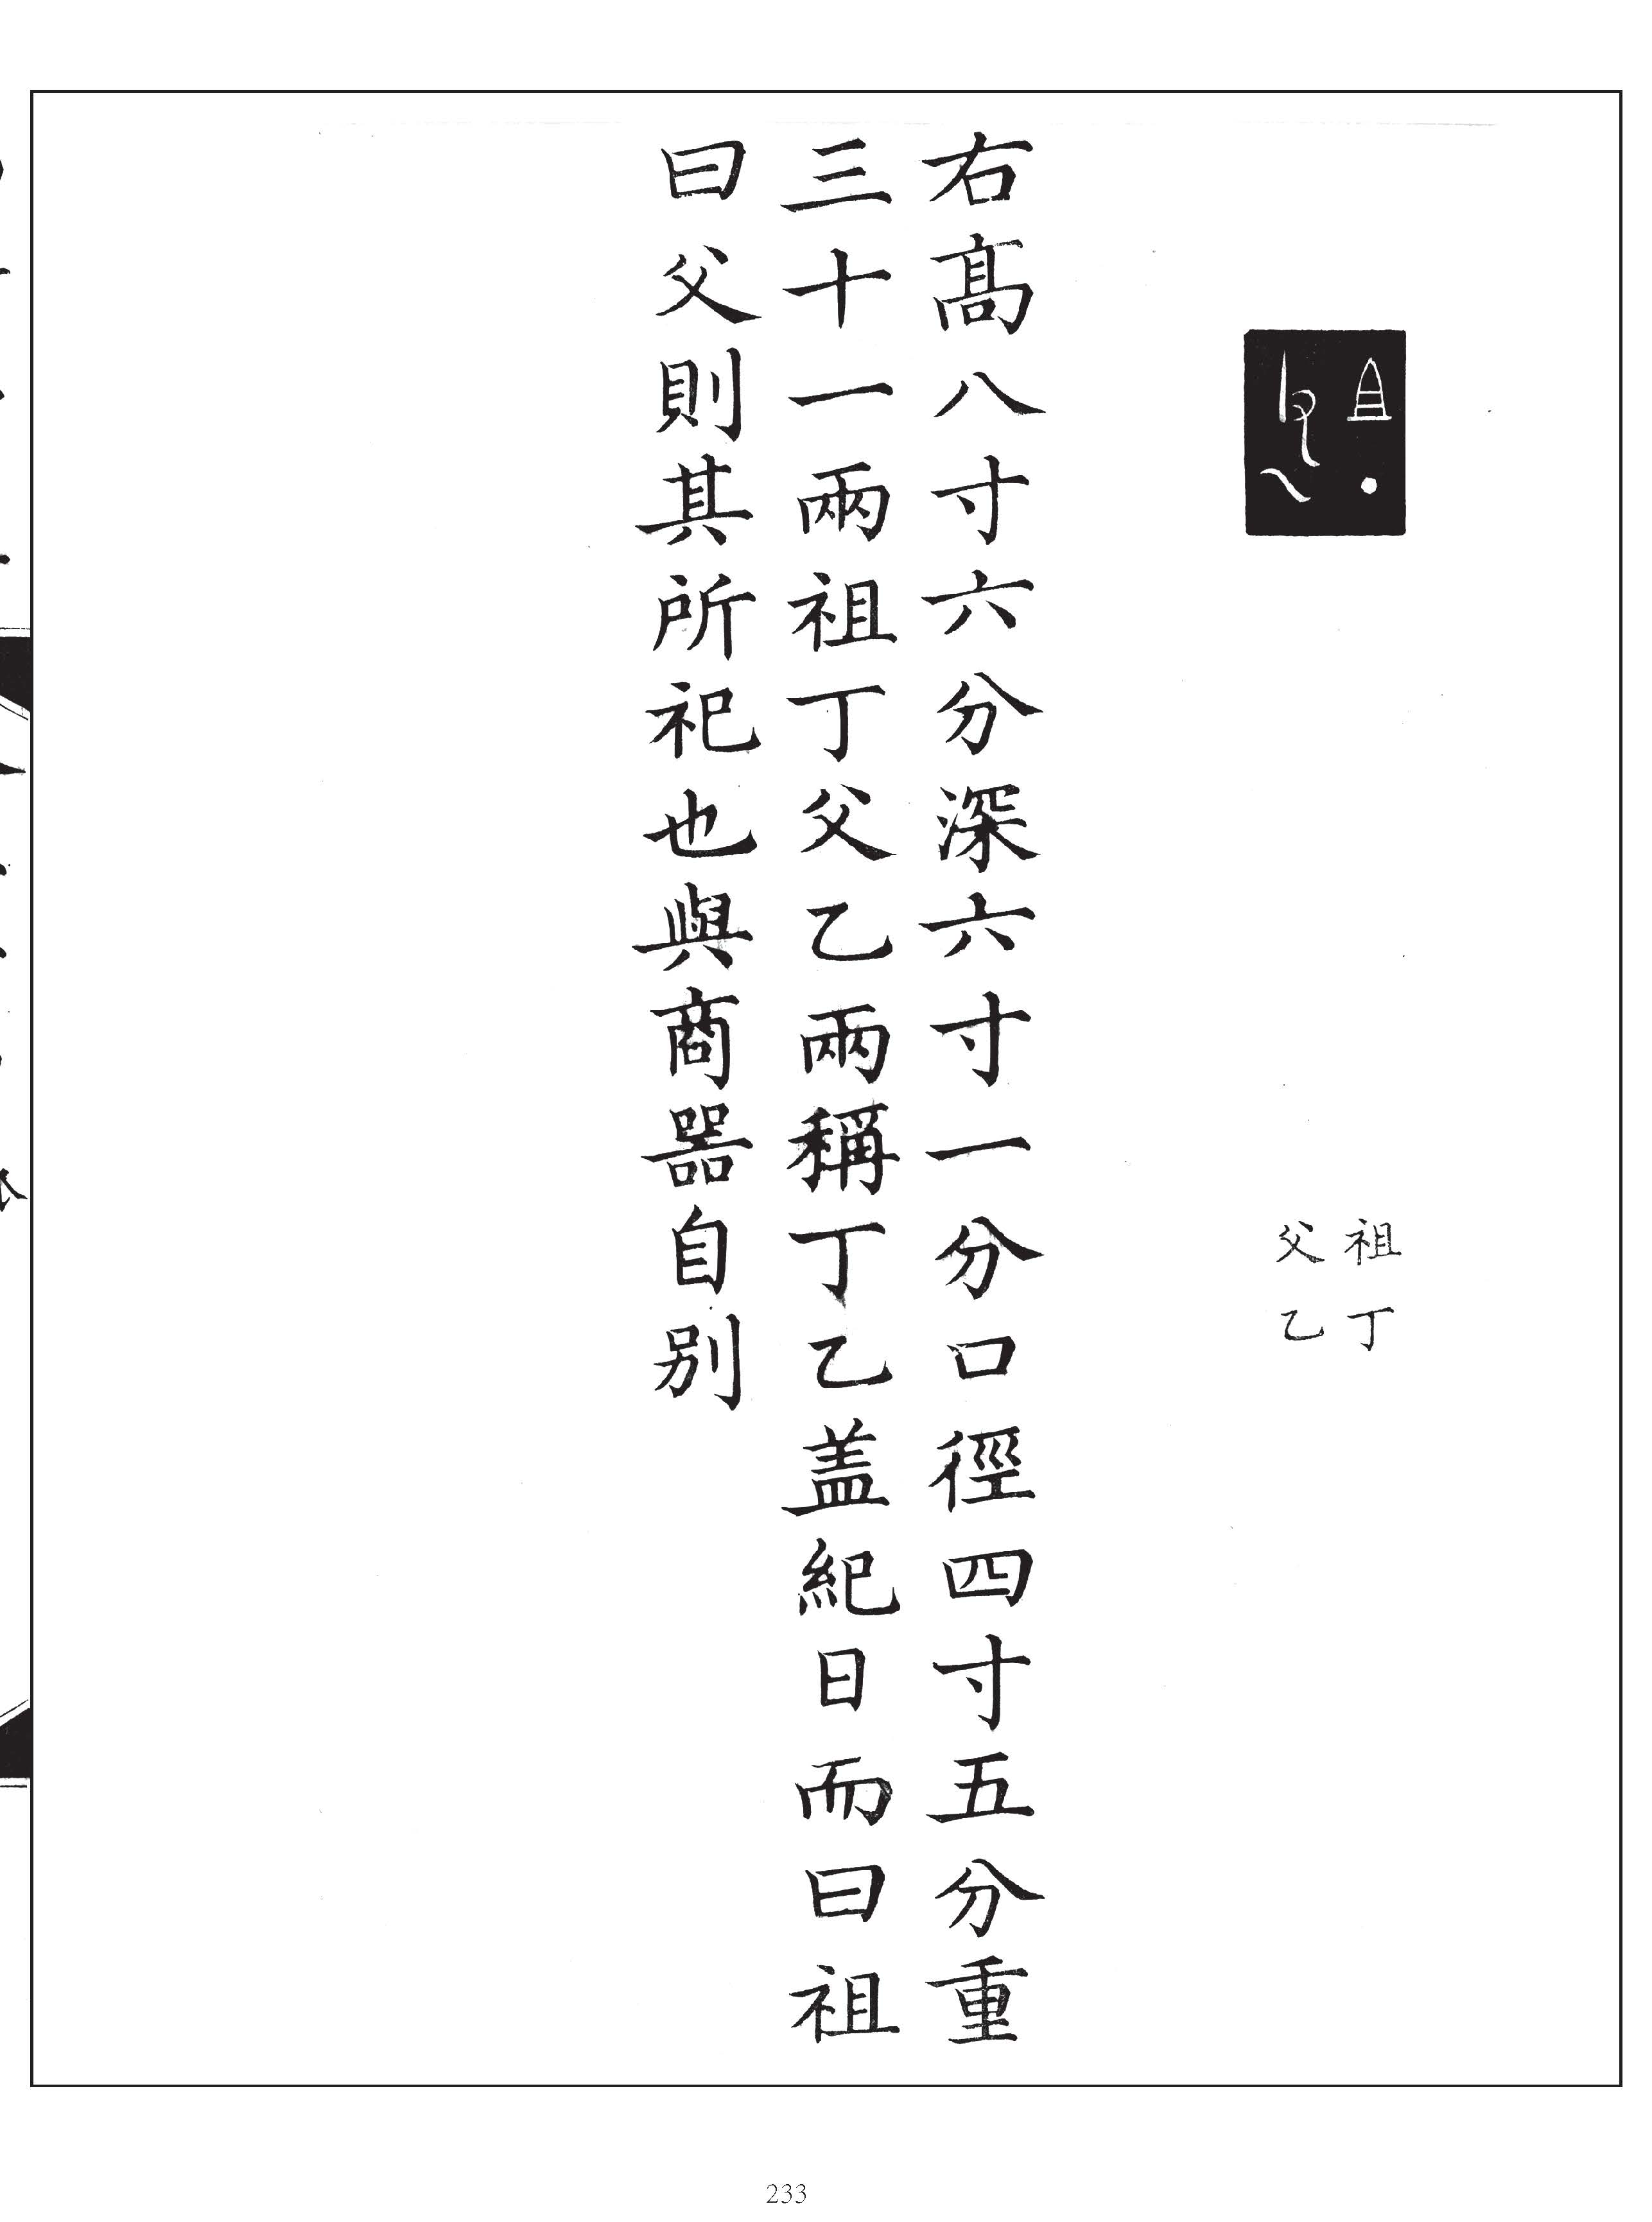 祖丁
父乙
右高八寸六分深六寸一分口徑四寸五分重
三十一兩祖丁父乙兩稱丁乙蓋紀日而曰祖
曰父則其所祀也與商器自别
233